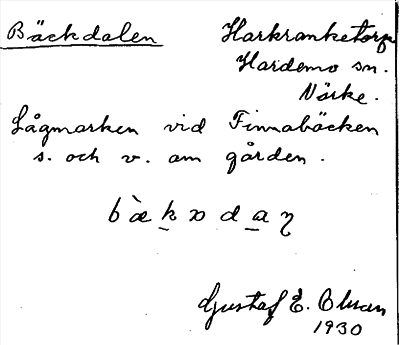 Bäckdalen Harkranketorp
Hardemo sn.
Närke.
Lågmarken vid Finnabäcken
s. och v. om gården.
Gustaf E. Olsson
1930